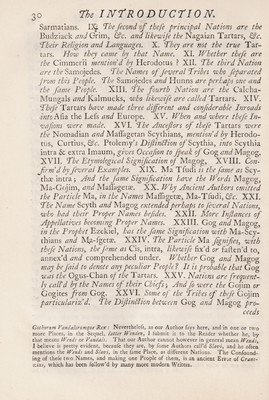 30 The INTRODUCTION.
Sarmatians. IX. The second of these principal Nations are the
Budziack and Grim, &c. and likewise the Nagaian Tartars, &c.
Their Religion and Languages. X. They are not the true Tar-
tars. How they came by that Name. XI. Whether these are
the Cimmerii mention'd by Herodotus ? XII. The third Nation
are the Samojedes. The Names of several Tribes who separated
from this People. The Samojedes and Hunns are perhaps one and
the same People. XIII. The fourth Nation are the Calcha-
Mungals and Kalmucks, who likewise are called Tartars. XIV.
These Tartars have made three different and considerable Inroads
into Asia the Less and Europe. XV. When and where these In-
vasions were made. XVI. The Ancestors of these Tartars were
the Nomadian and Massagetan Scythians, mention'd by Herodo-
tus, Curtius, &c. Ptolemy's Distinction of Scythia, into Scythia
intra & extra Imaum, gives Occasion to speak of Gog and Magog.
XVII. The Etymological Signification of Magog, XVIII. Con-
firm'd by several Examples. XIX. Ma Tsudi is the same as Scy-
thæ intra ; And the same Signification have the Words Magog,
Ma-Gojim, and Massagetæ. XX. Why Ancient Authors omitted
the Particle Ma, in the Names Massagetæ, Ma-Tsudi, &c. XXI.
The Name Scyth and Magog extended perhaps to several Nations,
who had their Proper Names besides. XXII. More Instances of
Appellatives becoming Proper Names. XXIII. Gog and Magog,
in the Prophet Ezekiel, has the same Signification with Ma-Scy-
thians and Ma-getæ. XXIV. The Particle Ma signifies, with
these Nations, the same as Cis, intra, likewise fix'd or fasten'd to,
annex'd and comprehended under. Whether Gog and Magog
may be said to denote any peculiar People? It is probable that Gog
was the Ogus-Chan of the Tartars. XXV. Nations are frequent-
ly call'd by the Names of their Chiefs; And so were the Gojim or
Gogites from Gog. XXVI. Some of the Tribes of these Gojim
particulariz'd. The Distinction between Gog and Magog pro-
ceeds
Gothorum Vandalorumque Rex: Nevertheless, as our Author says here, and in one or two
more Places, in the Sequel, I submit it to the Reader whether he, by
that means Wends or Vandals. That our Author cannot however in general mean Wends,
I believe is pretty evident, because they are, by some Authors call'd Slavi, and he often
mentions the Wends and Slavi, in the same Place, as different Nations. The Confound-
ing of these two Names, and making one People of them, is an ancient Error of
which has been follow'd by many more modern Writers.